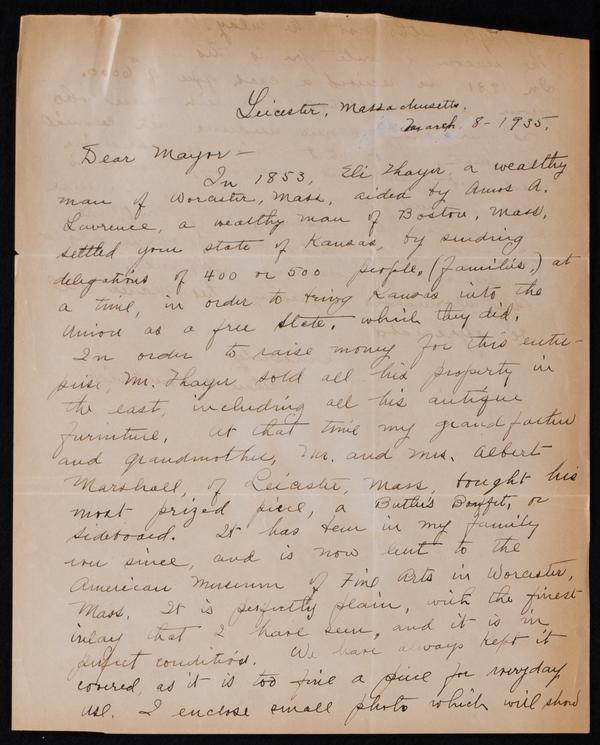 Leicester, Massachusetts.
March 8-1935.
Dear Mayor-
In 1853, Eli Thayer, a wealthy
man of Worcester, Mass, aided by Amos A.
Lawrence, a wealthy man of Boston, Mass,
settled your state of Kansas, by sending
delegations of 400 or 500 people, (families,) at
a time, in order to bring Kansas into the
Union as a free State, which they did.
In order to raise money for this enter-
prise, Mr. Thayer sold all his property in
the east, including all his antique
furniture. At that time my grandfather
and grandmother, Mr. and Mrs. Albert
Marshall, of Leicester, Mass, bought his
most prized piece, a Butler's Buffet, or
sideboard. It has been in my family
ever since, and is now lent to the
American Museum of Fine Arts in Worcester,
Mass. It is perfectly plain, with the finest
inlay that I have seen, and it is in
perfect condition. We have always kept it
covered, as it is too fine a piece for everyday
use. I enclose small photo which will show